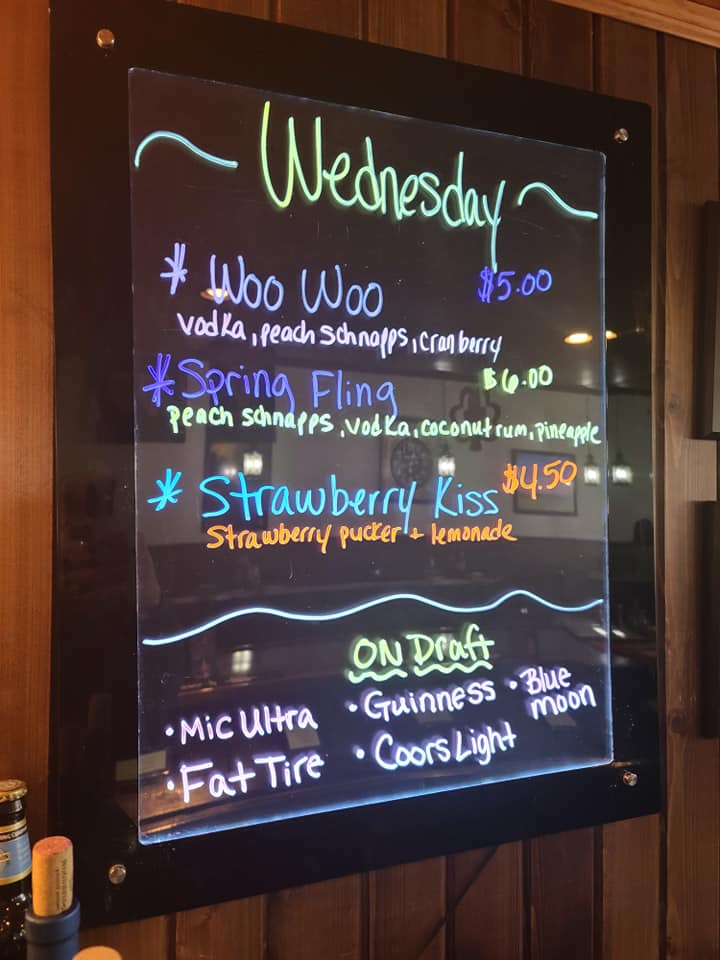 Wednesday
* Woo Woo $5.00
vodka, peach schnapps, cranberry
* Spring Fling $6.00
peach schnapps, vodka, coconut rum, pineapple
* Strawberry Kiss $4.50
Strawberry pucker + lemonade
ON Draft
• Mic Ultra • Guinness • Blue moon
• Fat Tire • Coors Light